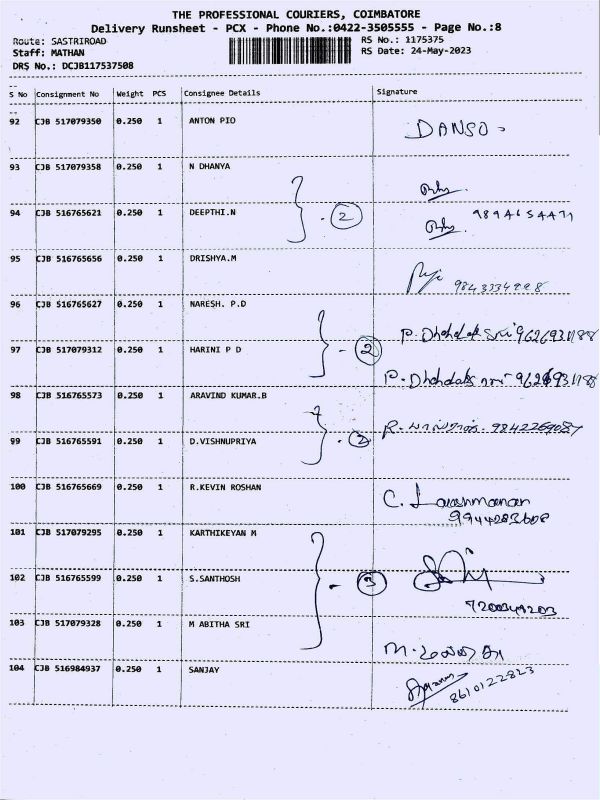 THE PROFESSIONAL COURIERS, COIMBATORE
Delivery Runsheet - PCX - Phone No.:0422-3505555 - Page No.:8
Route: SASTRIROAD RS No.: 1175375
Staff: MATHAN RS Date: 24-May-2023
DRS No.: DCJB117537508
S No Consignment No Weight PCS Consignee Details Signature
92 CJB 517079350 0.250 1 ANTON PIO DANSO
93 CJB 517079358 0.250 1 N DHANYA
94 CJB 516765621 0.250 1 DEEPTHI.N 2 9894654471
95 CJB 516765656 0.250 1 DRISHYA.M 9843334998
96 CJB 516765627 0.250 1 NARESH. P.D P.
97 CJB 517079312 0.250 1 HARINI P D 2 P.
98 CJB 516765573 0.250 1 ARAVIND KUMAR.B R.
99 CJB 516765591 0.250 1 D.VISHNUPRIYA 2
100 CJB 516765669 0.250 1 R.KEVIN ROSHAN C.
9944283608
101 CJB 517079295 0.250 1 KARTHIKEYAN M
102 CJB 516765599 0.250 1 S.SANTHOSH 3
7200349203
103 CJB 517079328 0.250 1 M ABITHA SRI M.
104 CJB 516984937 0.250 1 SANJAY 8610122823